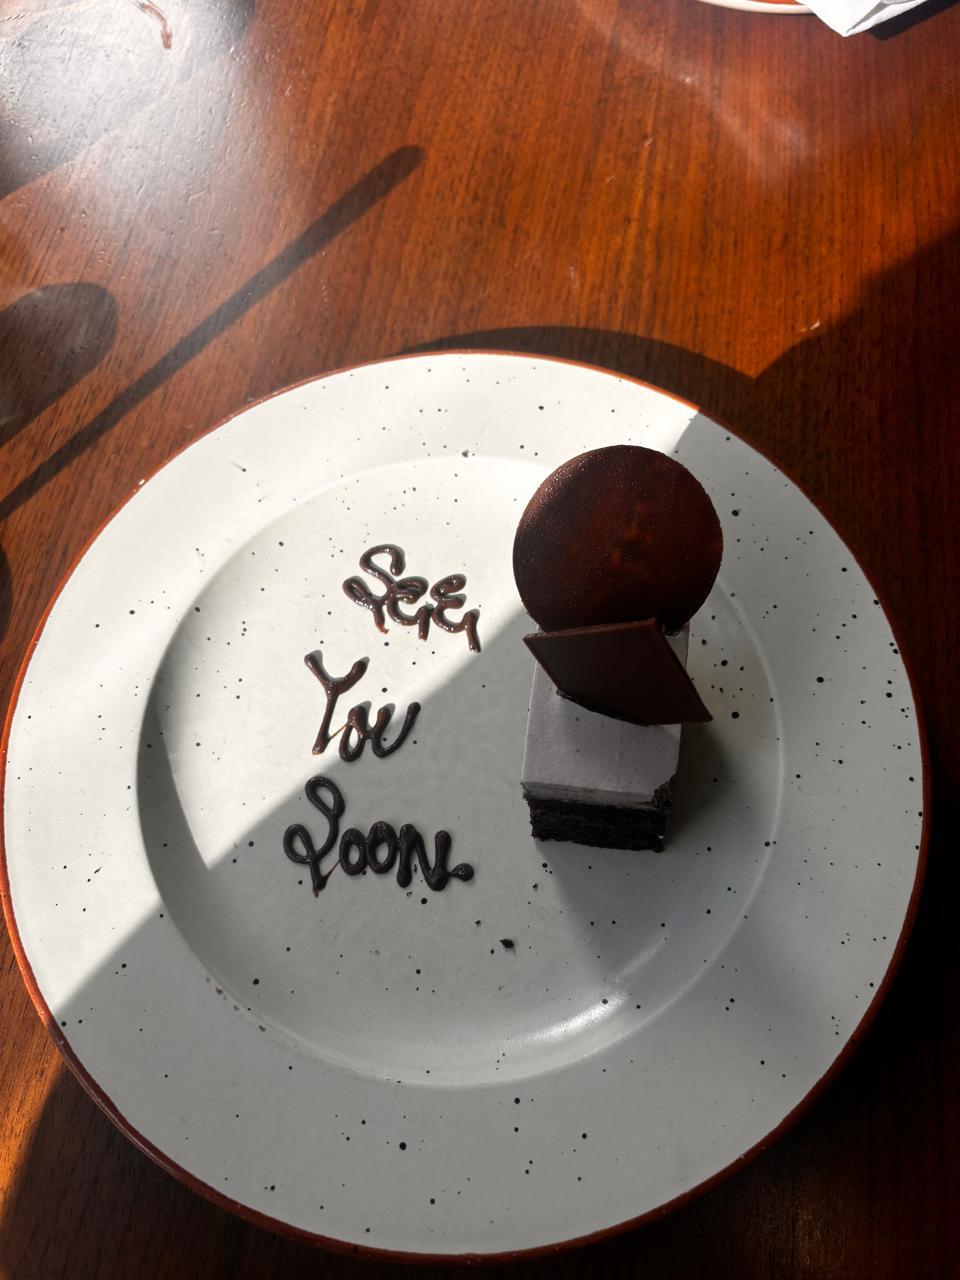 See
You
Soon.